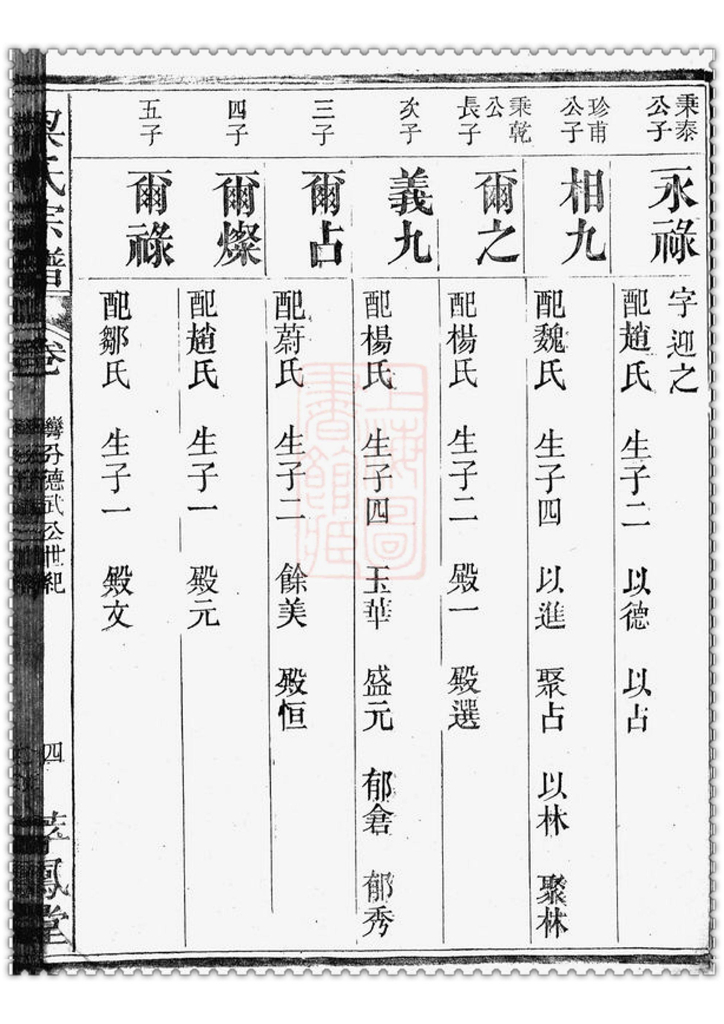 秉泰公子
永祿
字迎之
配趙氏 生子二 以德 以占
珍甫公子
相九
配魏氏 生子四 以進 聚占 以林 聚林
秉乾公長子
爾之
配楊氏 生子二 殿一 殿選
次子
義九
配楊氏 生子四 玉華 盛元 郁倉 郁秀
三子
爾占
配蔚氏 生子二 餘美 殿恒
四子
爾燦
配趙氏 生子一 殿元
五子
爾祿
配鄒氏 生子一 殿文
氏宗譜
卷
德武公世紀
四
鳳堂
上海圖書館藏